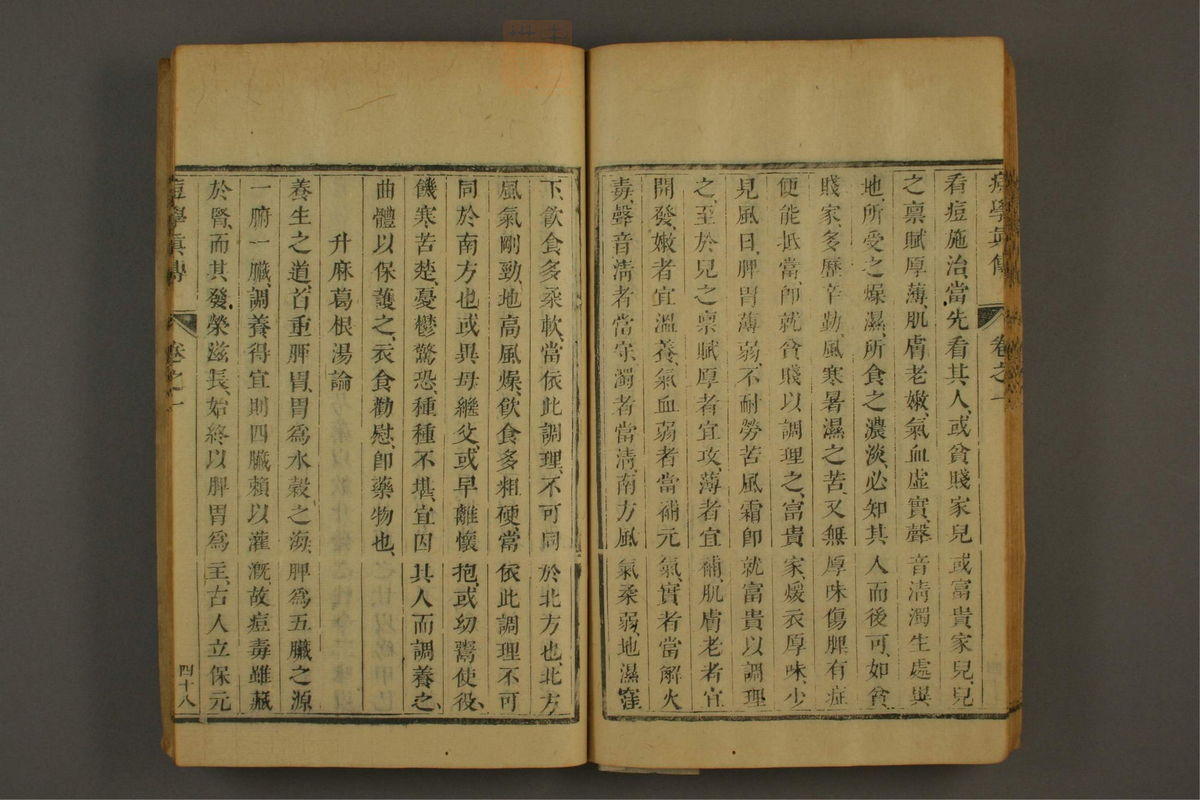 痘學眞傳 卷之一
看痘施治、當先看其人、或貧賤家兒、或富貴家兒、兒
之禀賦厚薄、肌膚老嫩、氣血虛實、聲音清濁、生處與
地、所受之燥濕、所食之濃淡、必知其人而後可、如貧
賤家、多歷辛勤、風寒暑濕之苦、又無厚味傷脾、有症
便能抵當、卽就貧賤以調理之、富貴家、煖衣厚味、少
見風日、脾胃薄弱、不耐勞苦風霜、卽就富貴以調理
之、至於兒之禀賦厚者宜攻、薄者宜補、肌膚老者宜
開發、嫩者宜溫養、氣血弱者當補元氣、實者當解火
毒、聲音清者當守、濁者當清、南方風氣柔弱、地濕窪
下、飲食多柔軟、當依此調理、不可同於北方也、北方
風氣剛勁、地高風燥、飲食多粗硬、當依此調理、不可
同於南方也、或異母繼父、或早離懷抱、或幼鬻使役、
饑寒苦楚、憂鬱驚恐、種種不堪、宜因其人而調養之、
曲體以保護之、衣食勸慰、卽藥物也、
升麻葛根湯論
養生之道、首重脾胃、胃爲水穀之海、脾爲五臟之源
一腑一臟、調養得宜、則四臟賴以灌漑、故痘毒雖藏
於腎、而其發榮滋長、始終以脾胃爲主、古人立保元
痘學眞傳 卷之一 四十八